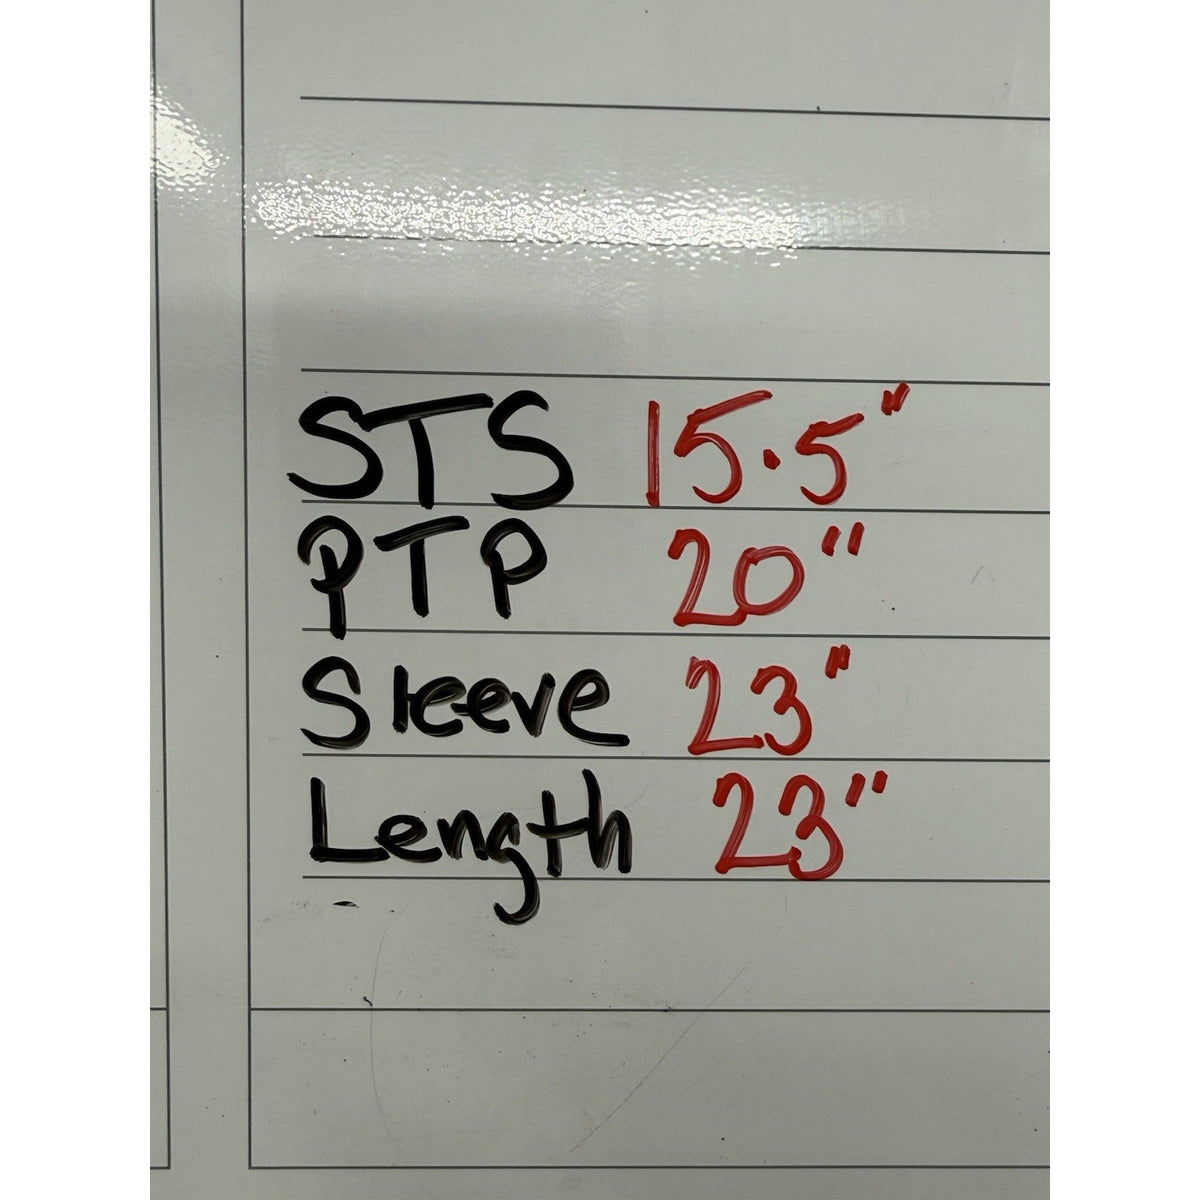 STS 15.5"
PTP 20"
Sleeve 23"
Length 23"